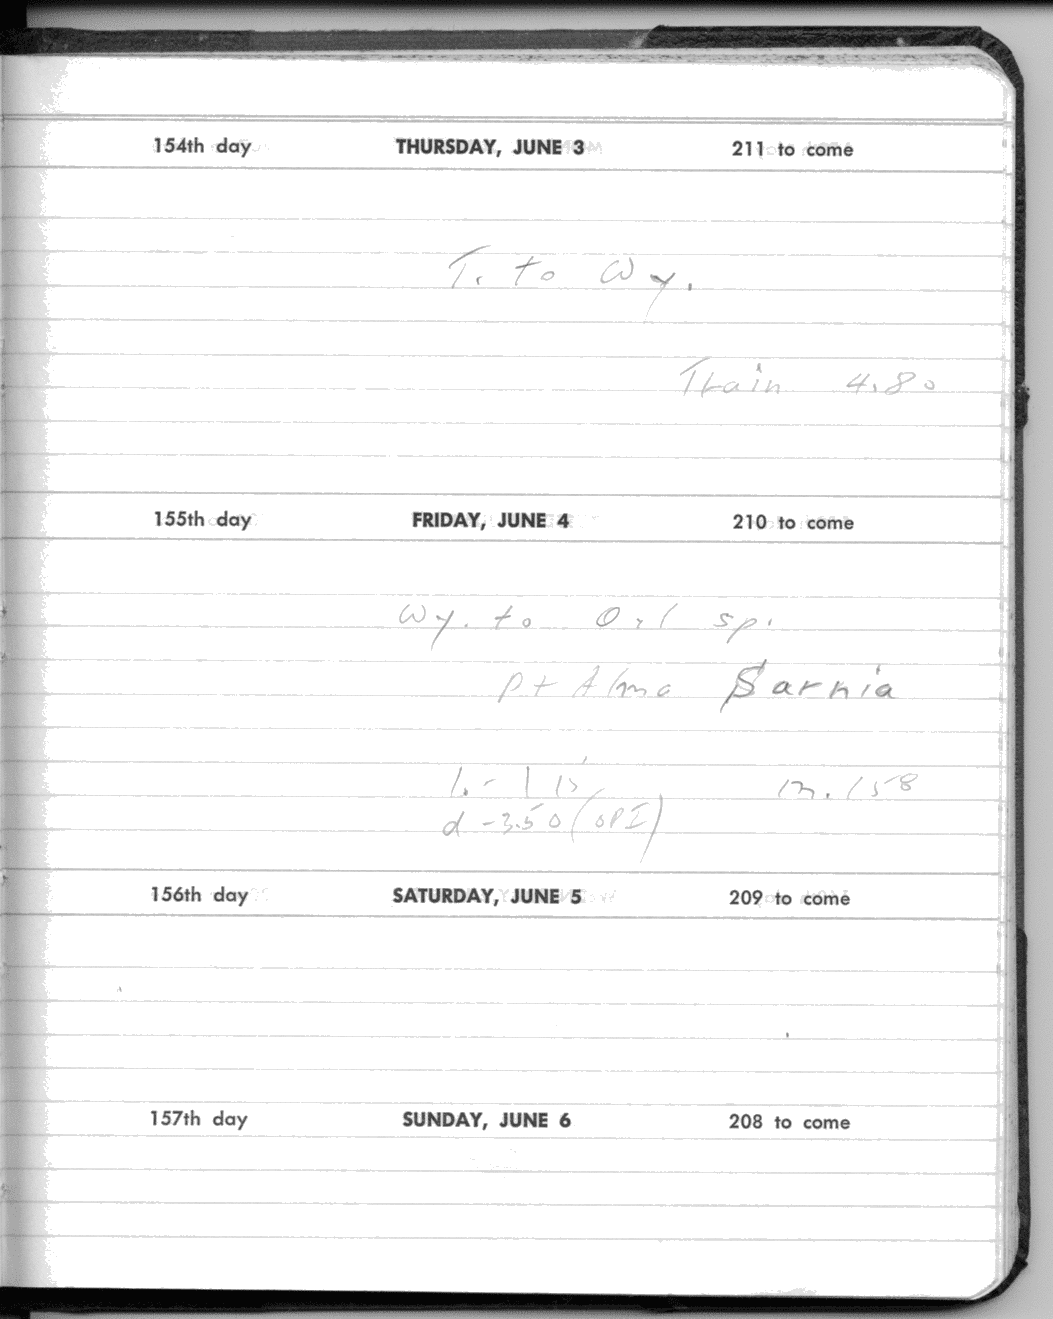 154th day THURSDAY, JUNE 3 211 to come
T. to Wy.
Train 4.80
155th day FRIDAY, JUNE 4 210 to come
Wy. to Oil sp.
Pt Alma Sarnia
l. - 1 15 m. 158
d - 3.50 (OPI)
156th day SATURDAY, JUNE 5 209 to come
157th day SUNDAY, JUNE 6 208 to come